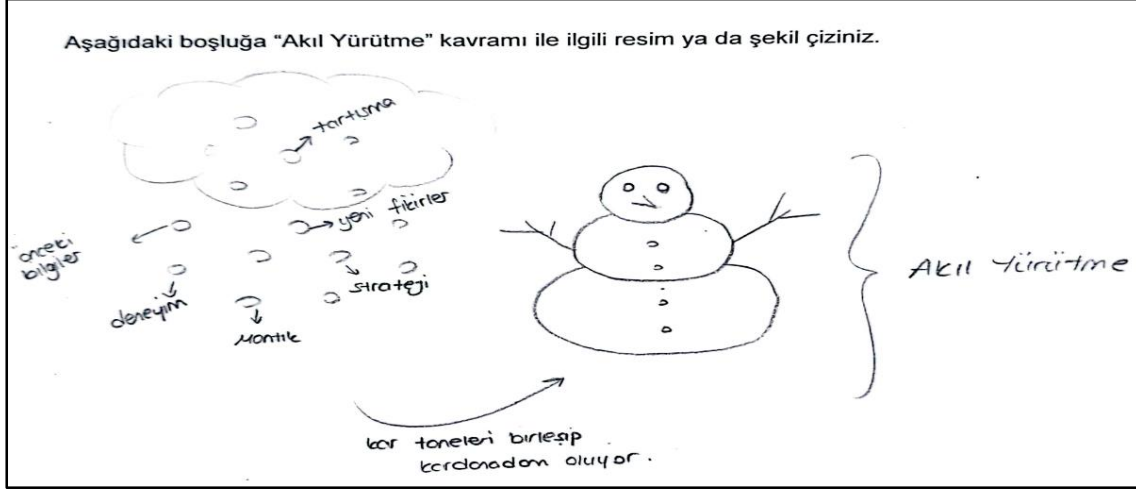 Aşağıdaki boşluğa “Akıl Yürütme” kavramı ile ilgili resim ya da şekil çiziniz.
tartışma
yeni fikirler
önceki
bilgiler
strateji
deneyim
Mantık
Akıl Yürütme
kar taneleri birleşip
kardanadam oluyor.